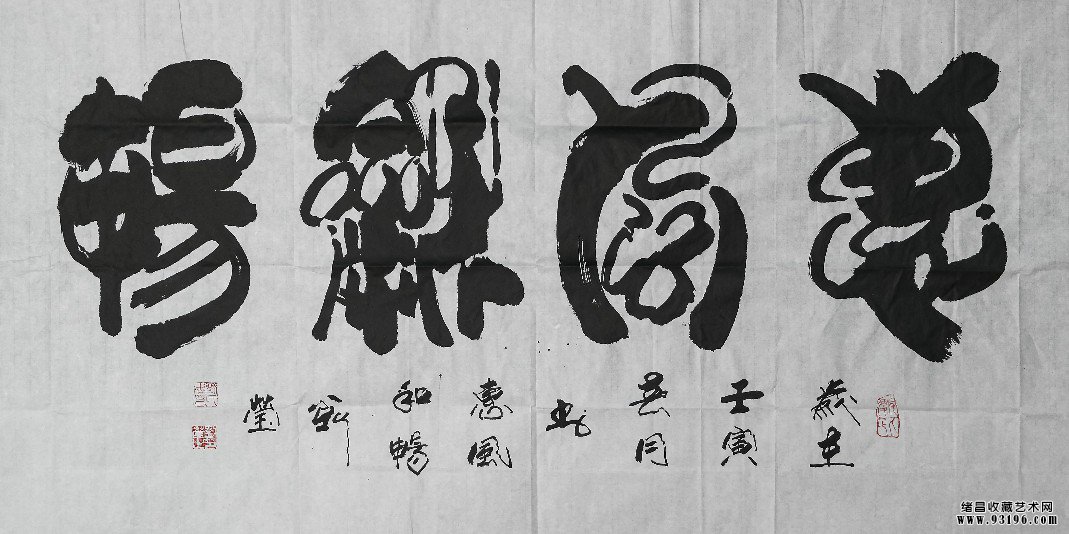 惠風龢暢
歲在
壬寅
月
书
惠風
和暢
劉
瑩
绪昌收藏艺术网
www.93196.com